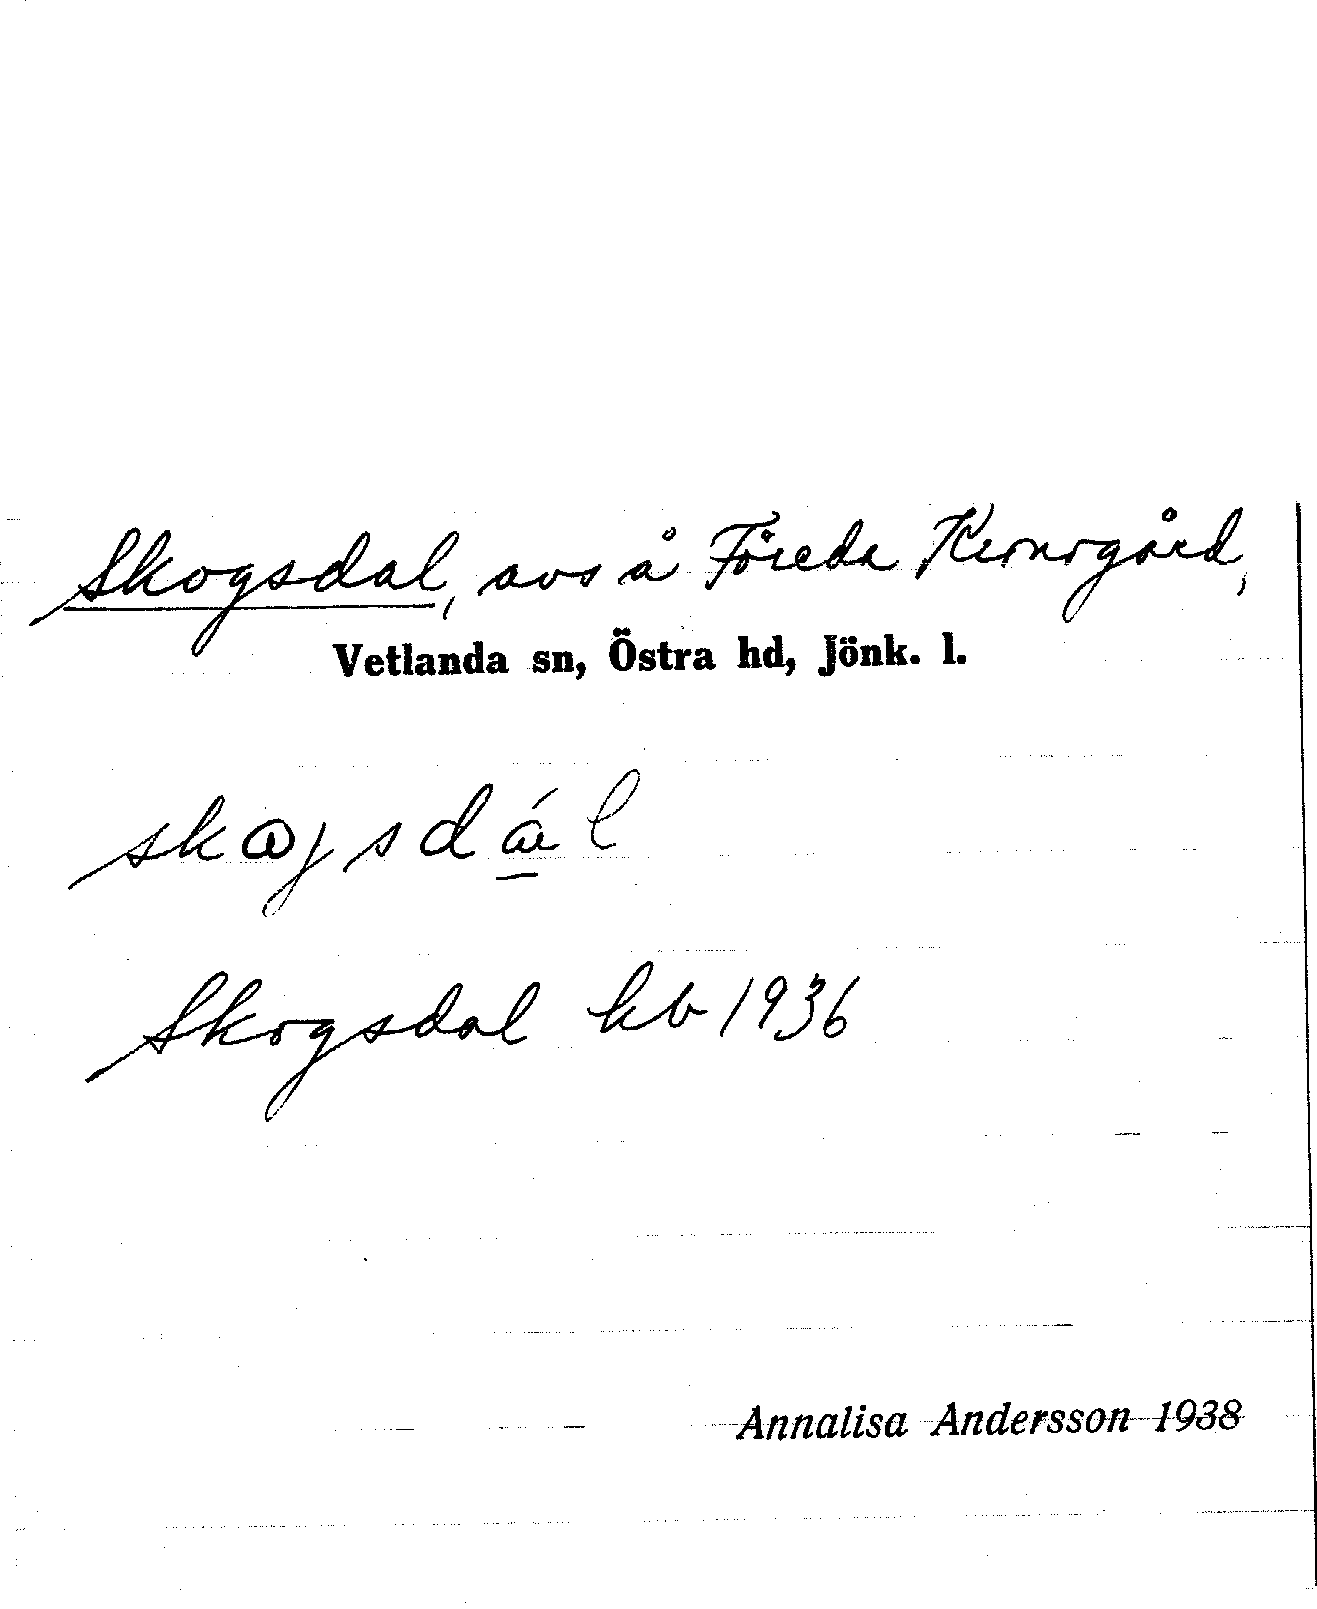 Skogsdal, avs å Föreda Kronogård,
Vetlanda sn, Östra hd, Jönk. l.
Skogsdal kb 1936
Annalisa Andersson 1938